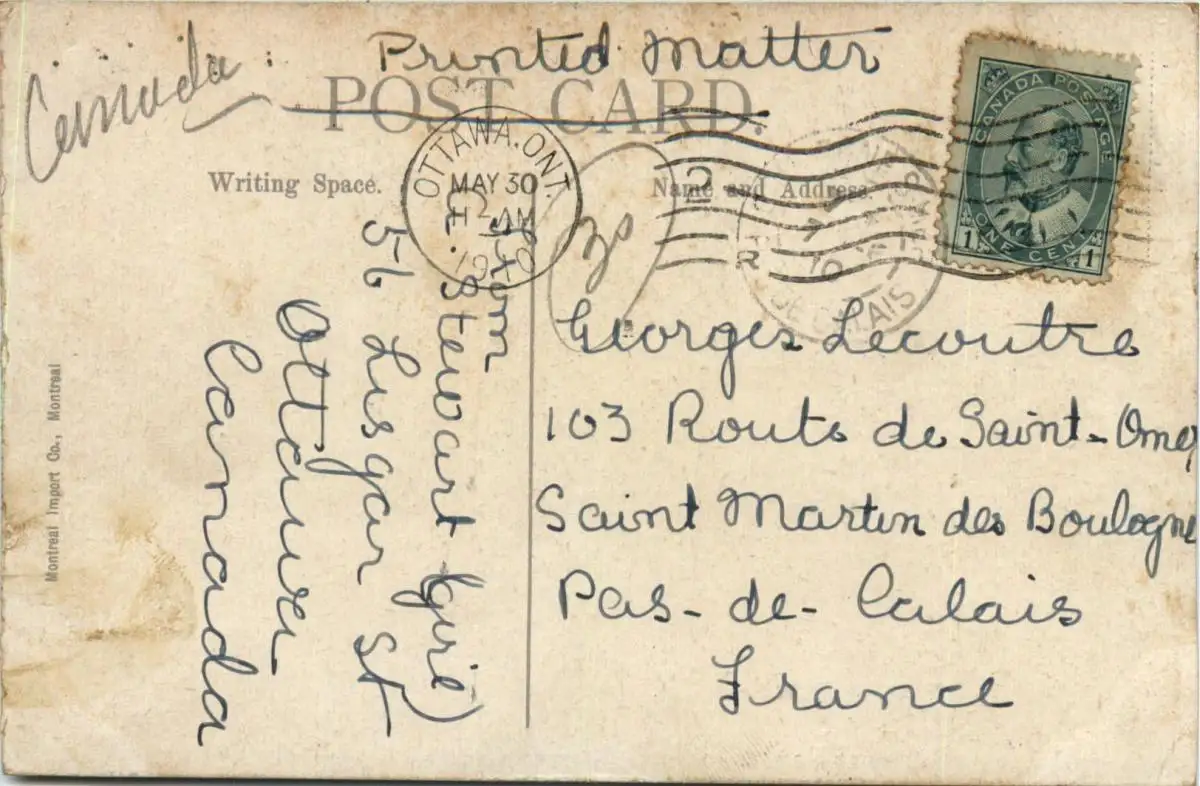 Canada
Printed Matter
POST CARD.
Writing Space.
Name and Address.
OTTAWA. ONT.
MAY 30
AM
1910
2
CANADA POSTAGE
1 ONE CENT 1
DE CALAIS
10
Georges Lecoutre
103 Route de Saint-Omer
Saint Martin des Boulogne
Pas-de-Calais
France
From
E. Stewart (girl)
56 Lisgar St
Ottawa
Canada
Montreal Import Co., Montreal